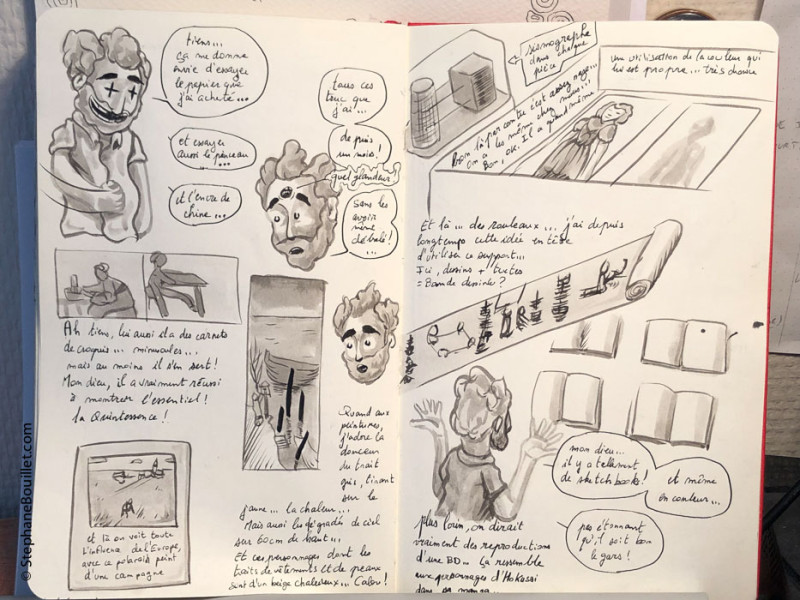 tiens...
ça me donne
envie d'essayer
le papier que
j'ai acheté...
et essayer
aussi le pinceau
et l'encre de
chine...
tous ces
truc que
j'ai...
depuis
un mois!
quel glandeur
sans les
avoir
même
déballé!
...
Ah tiens, lui aussi il a des carnets
de croquis... minuscules...
mais au moins il s'en sert!
Mon dieu, il a vraiment réussi
à montrer l'essentiel!
la Quintessence!
et là on voit toute
l'influence de l'Europe,
avec ce polaroid peint
d'une campagne
Quand aux
peintures,
j'adore la
douceur
du trait
gris, tirant
sur le
jaune... la chaleur...
Mais aussi les dégradés de ciel
sur 60cm de haut...
Et ces personnages dont les
traits de vêtements et de peaux
sont d'un beige chaleureux... Calou!
sismographe
dans chaque
pièce
Bon là par contre c'est assez naze...
On a les même chez nous...!
Bon, ok. Il a quand même
une utilisation de la couleur qui
lui est propre... très douce
Et là... des rouleaux... j'ai depuis
longtemps cette idée en tête
d'utiliser ce support...
Ici, dessins + textes
= Bande dessinée?
mon dieu...
il y a tellement
de sketchbooks!
et même
en couleur...
pas étonnant
qu'il soit bon
le gars!
plus loin, on dirait
vraiment des reproductions
d'une BD... la ressemble
aux personnages d'Hokusai
dans sa manga...
© StephaneBouillet.com